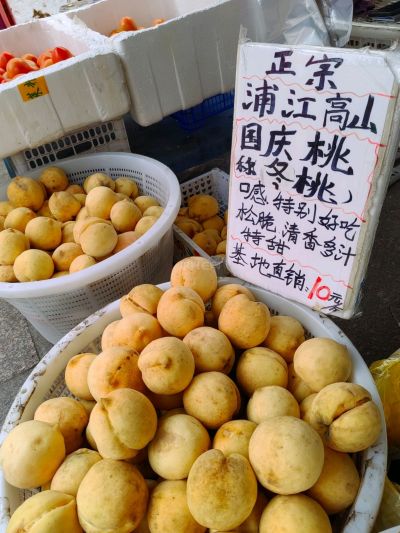 正宗
浦江高山
国庆桃
(冬桃)
口感特别好吃
松脆,清香多汁
特甜
基地直销,10元